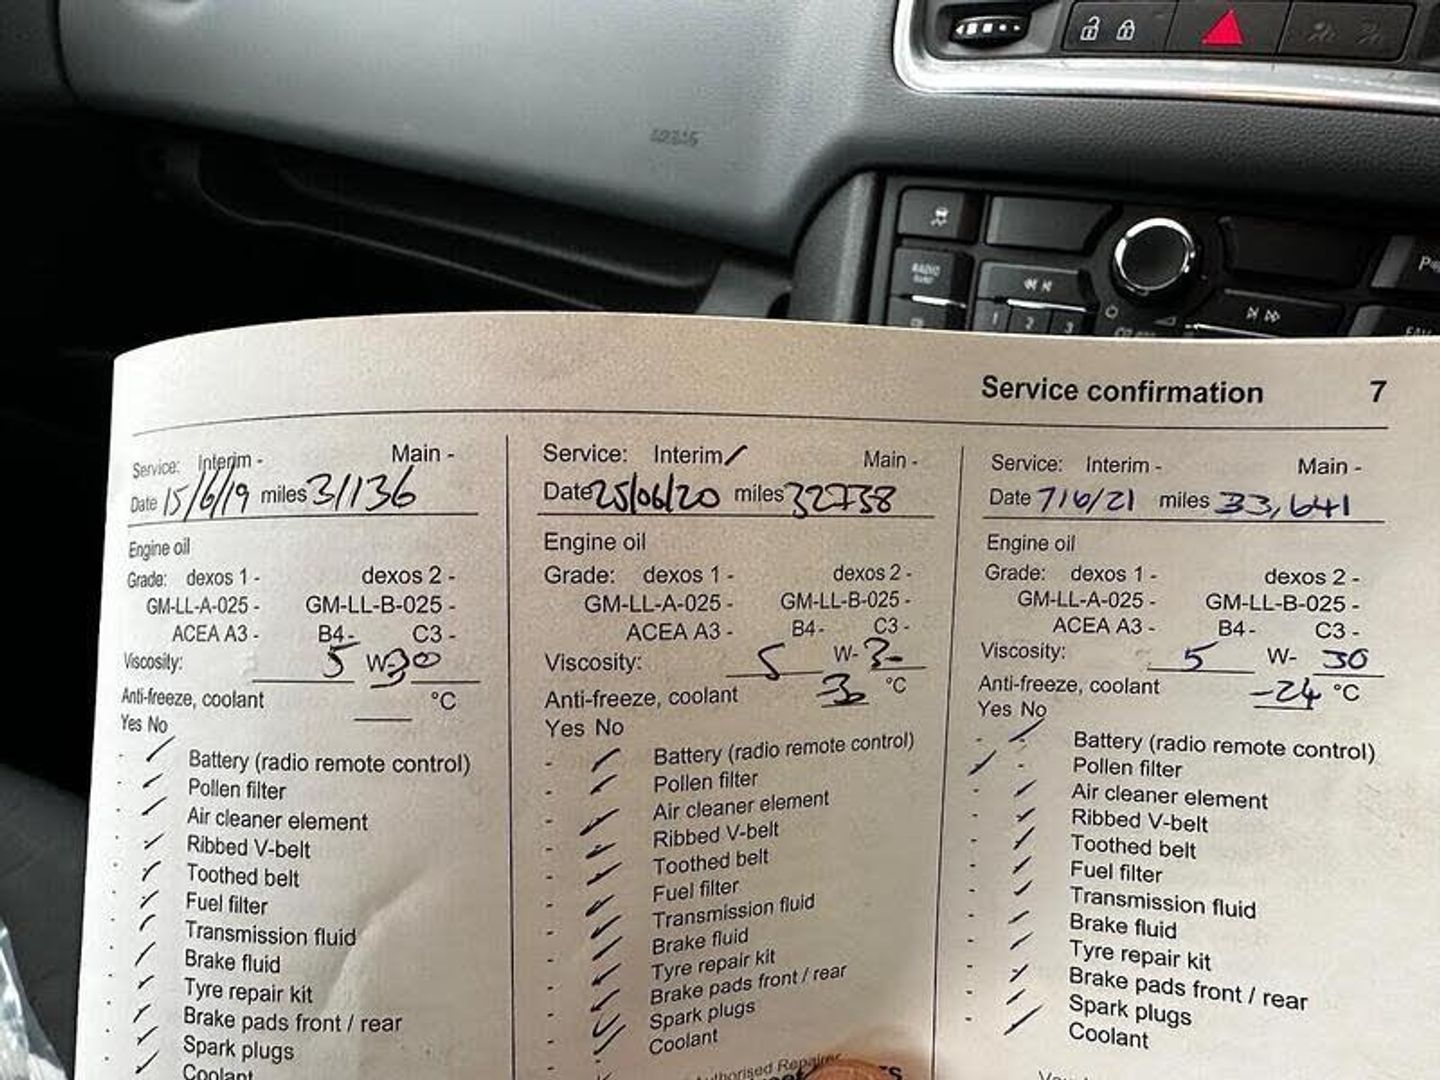 RADIO
1 2 3
Service confirmation 7
Service: Interim - Main -
Date 15/6/19 miles 31136
Engine oil
Grade: dexos 1 - dexos 2 -
GM-LL-A-025 - GM-LL-B-025 -
ACEA A3 - B4 - C3 -
Viscosity: 5 W- 30
Anti-freeze, coolant °C
Yes No
Battery (radio remote control)
Pollen filter
Air cleaner element
Ribbed V-belt
Toothed belt
Fuel filter
Transmission fluid
Brake fluid
Tyre repair kit
Brake pads front / rear
Spark plugs
Coolant
Service: Interim Main -
Date 25/06/20 miles 32738
Engine oil
Grade: dexos 1 - dexos 2 -
GM-LL-A-025 - GM-LL-B-025 -
ACEA A3 - B4 - C3 -
Viscosity: 5 W- 30
Anti-freeze, coolant °C
Yes No
Battery (radio remote control)
Pollen filter
Air cleaner element
Ribbed V-belt
Toothed belt
Fuel filter
Transmission fluid
Brake fluid
Tyre repair kit
Brake pads front / rear
Spark plugs
Coolant
Authorised Repairer
Service: Interim - Main -
Date 7/6/21 miles 33,641
Engine oil
Grade: dexos 1 - dexos 2 -
GM-LL-A-025 - GM-LL-B-025 -
ACEA A3 - B4 - C3 -
Viscosity: 5 W- 30
Anti-freeze, coolant -24 °C
Yes No
Battery (radio remote control)
Pollen filter
Air cleaner element
Ribbed V-belt
Toothed belt
Fuel filter
Transmission fluid
Brake fluid
Tyre repair kit
Brake pads front / rear
Spark plugs
Coolant